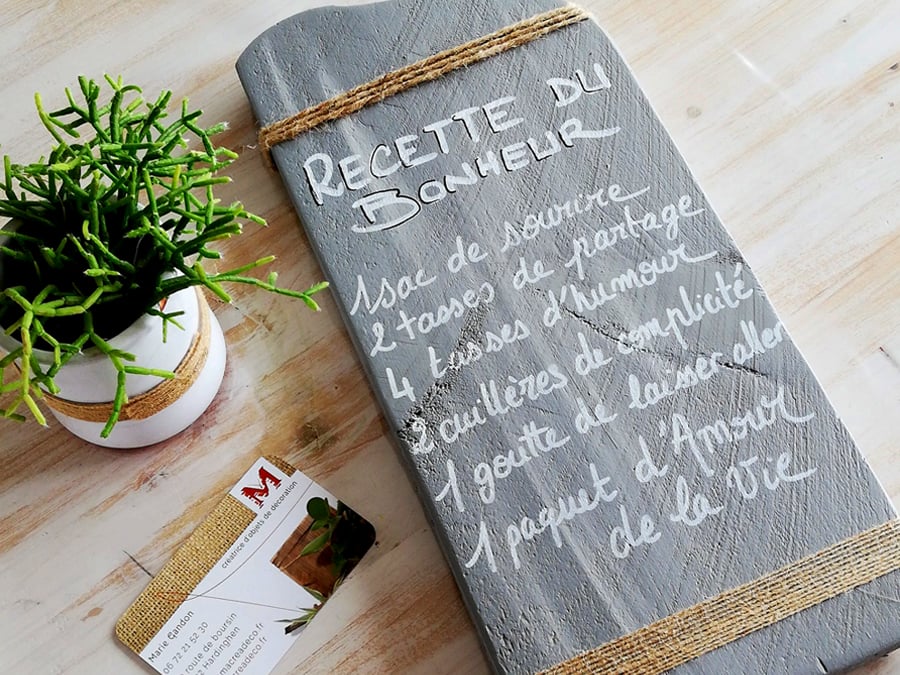 RECETTE DU
BONHEUR
1 sac de sourire
2 tasses de partage
4 tasses d'humour
2 cuillères de complicité
1 goutte de laisser aller
1 paquet d'Amour
de la Vie
M
créatrice d'objets de décoration
Marie Gandon
06 72 21 52 30
route de boursin
Hardinghen
macreadeco.fr
readeco.fr